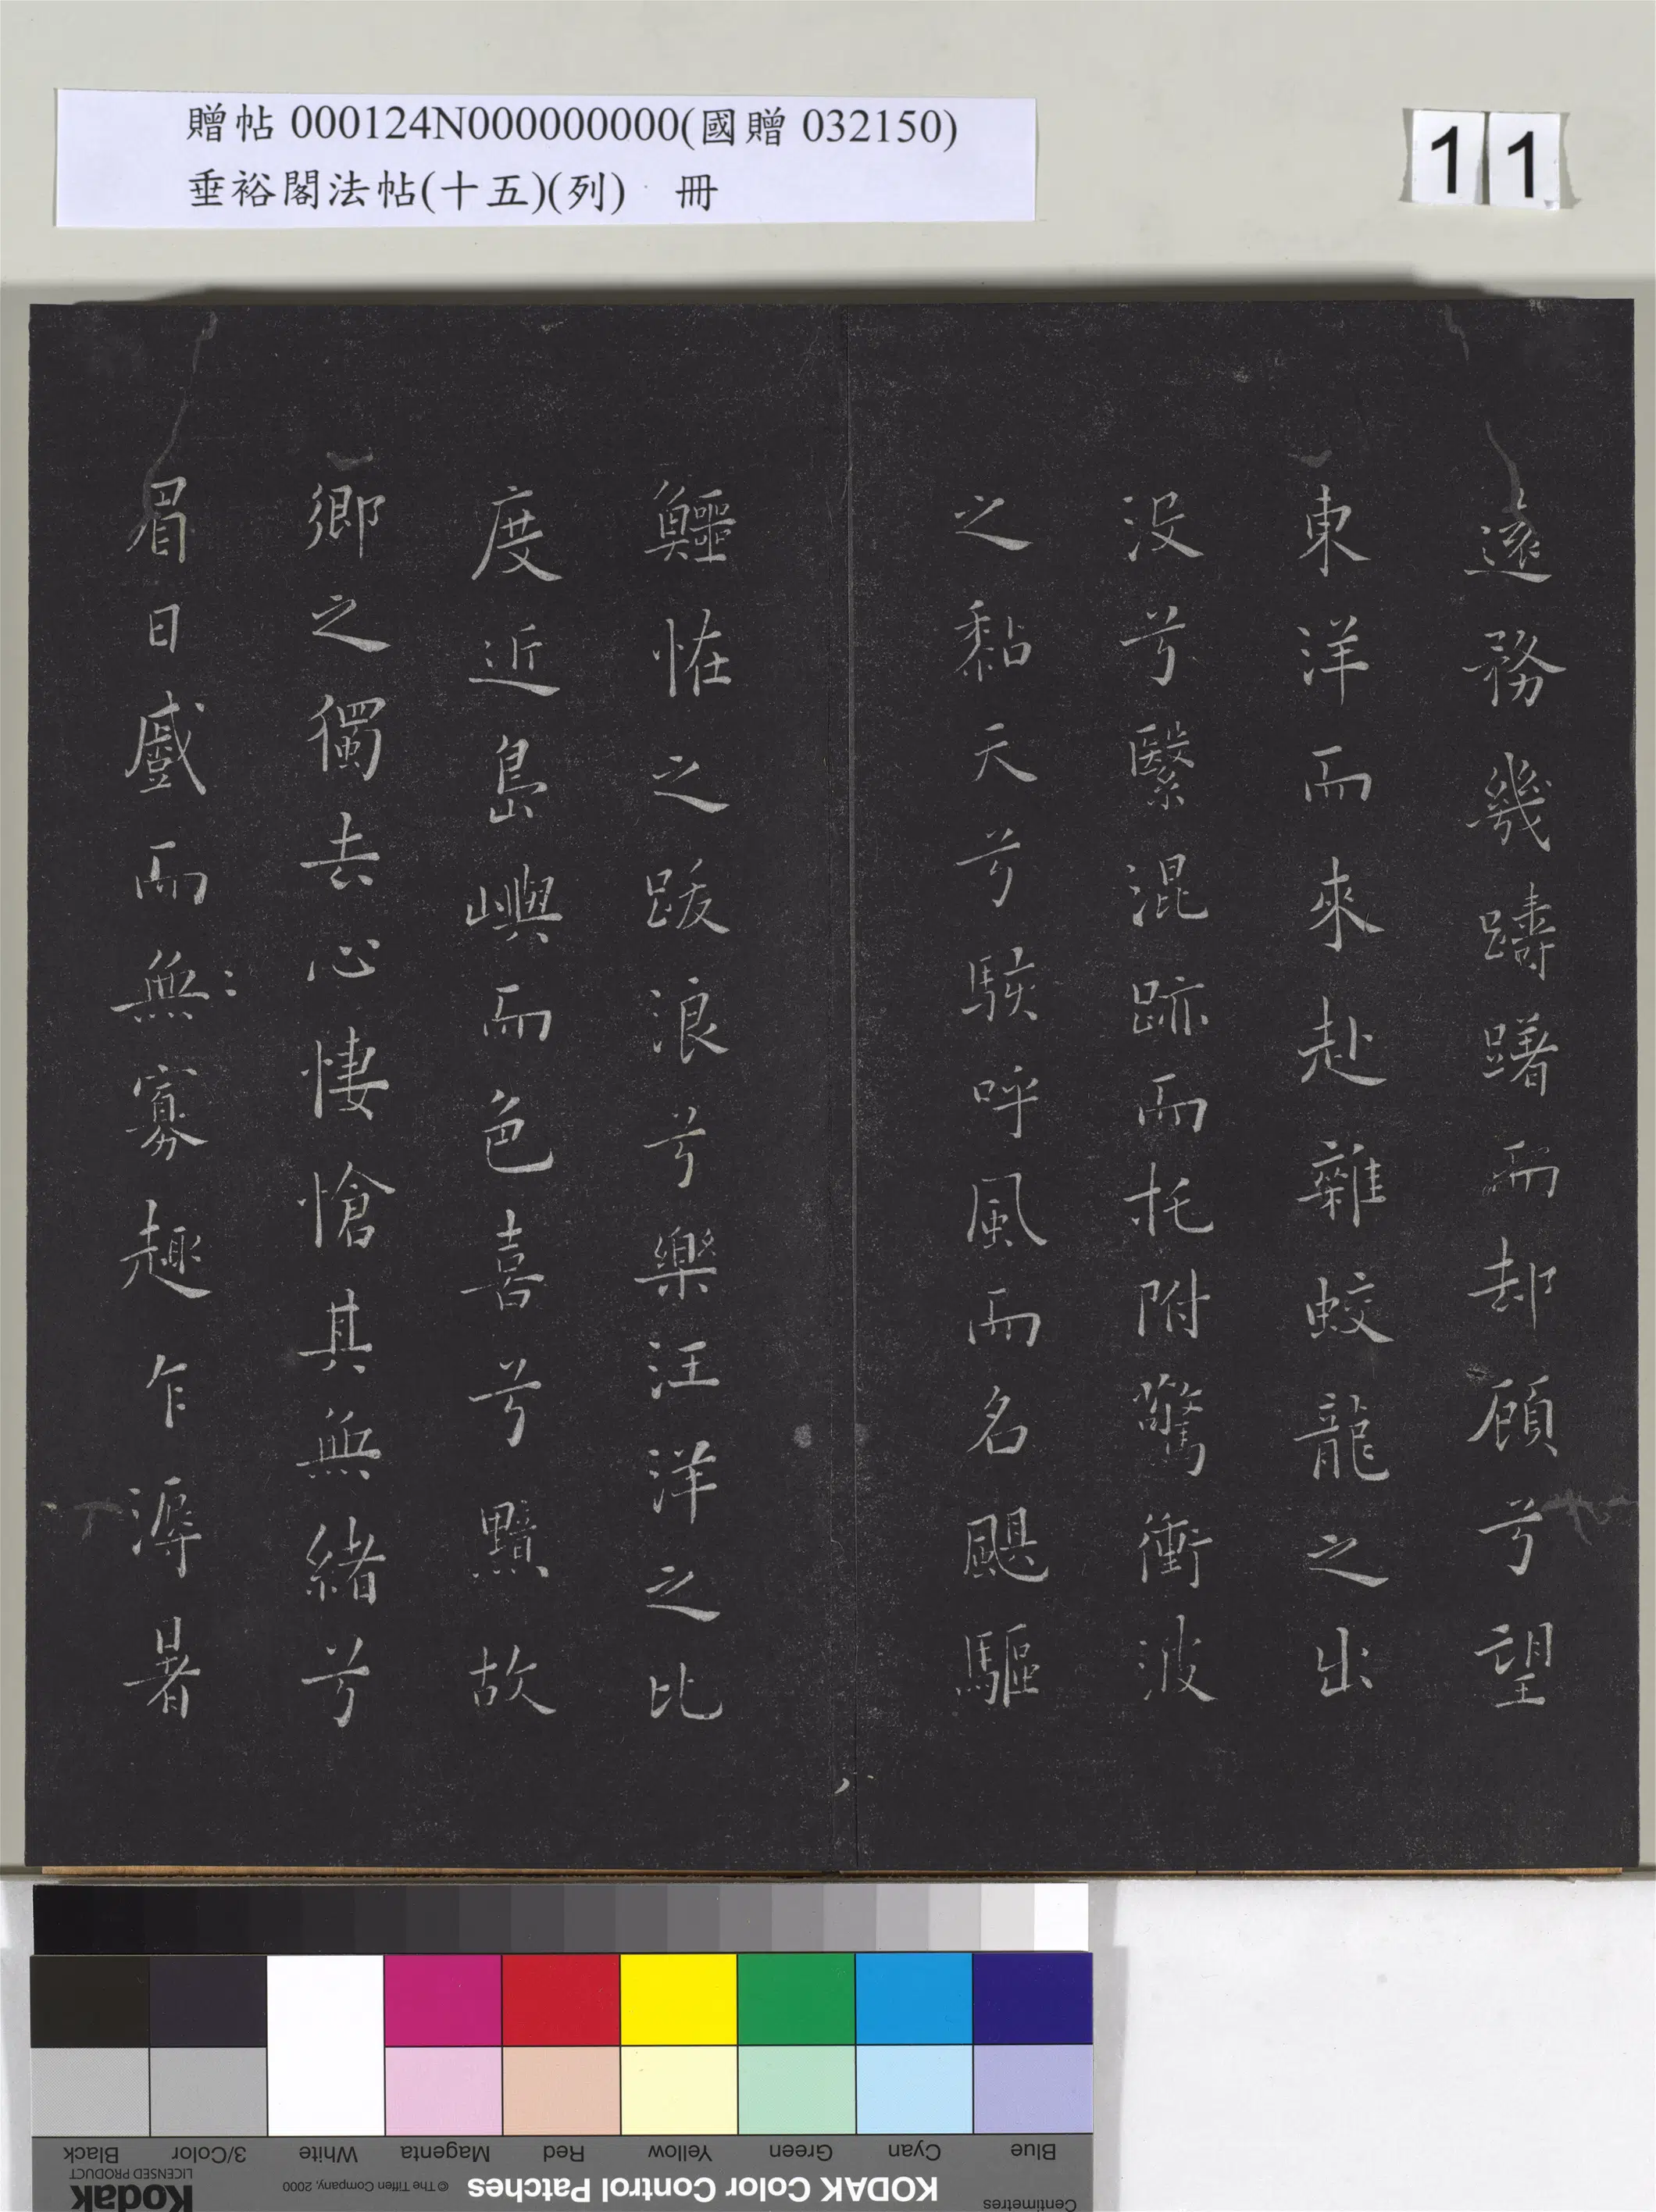 贈帖 000124N000000000(國贈 032150)
垂裕閣法帖(十五)(列) 冊
11
遠務幾躊躇而却顧兮望
東洋而來赴雜蛟龍之出
没兮繄混跡而托附驚衝波
之黏天兮駭呼風而名颶驅
鱷恠之跋浪兮樂汪洋之比
度近島嶼而色喜兮黯故
鄉之獨去心悽愴其無緒兮
眉日戲而無寡趣乍溽暑
Blue
Cyan
Green
Yellow
Red
Magenta
White
3/Color
Black
Centimetres
KODAK Color Control Patches
© The Tiffen Company, 2000
Kodak
LICENSED PRODUCT